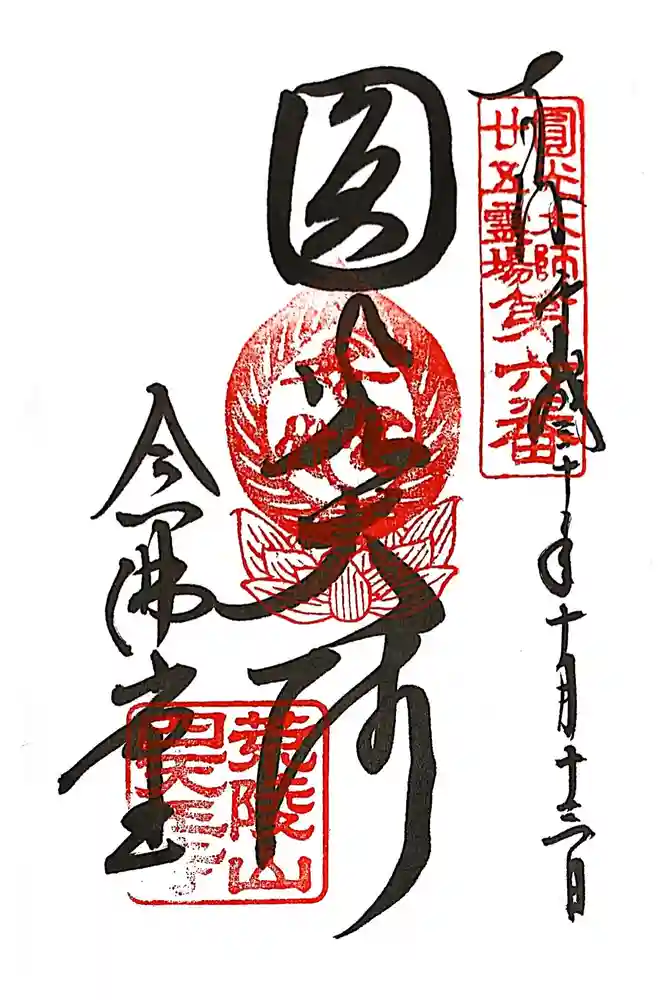 奉拝
平成三十年十月十三日
圓光大師
廿五霊場第六番
圓光大師
念佛堂
荒陵山
四天王寺